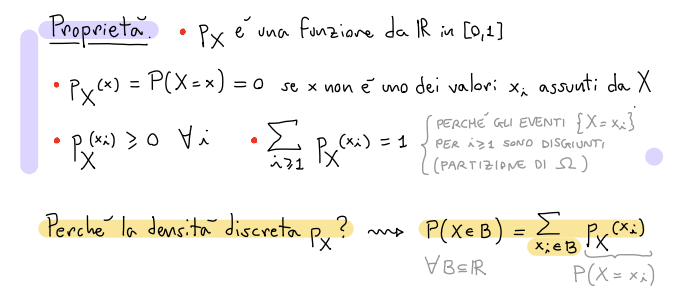 Proprietà. • p_X è una funzione da ℝ in [0,1]
• p_X(x) = P(X=x) = 0 se x non è uno dei valori x_i assunti da X
• p_X(x_i) ⩾ 0 ∀i • ∑_{i⩾1} p_X(x_i) = 1 { PERCHÉ GLI EVENTI {X=x_i}
PER i⩾1 SONO DISGIUNTI
(PARTIZIONE DI Ω)
Perché la densità discreta p_X? ⇝ P(X∈B) = ∑_{x_i∈B} p_X(x_i)
∀B⊆ℝ P(X=x_i)